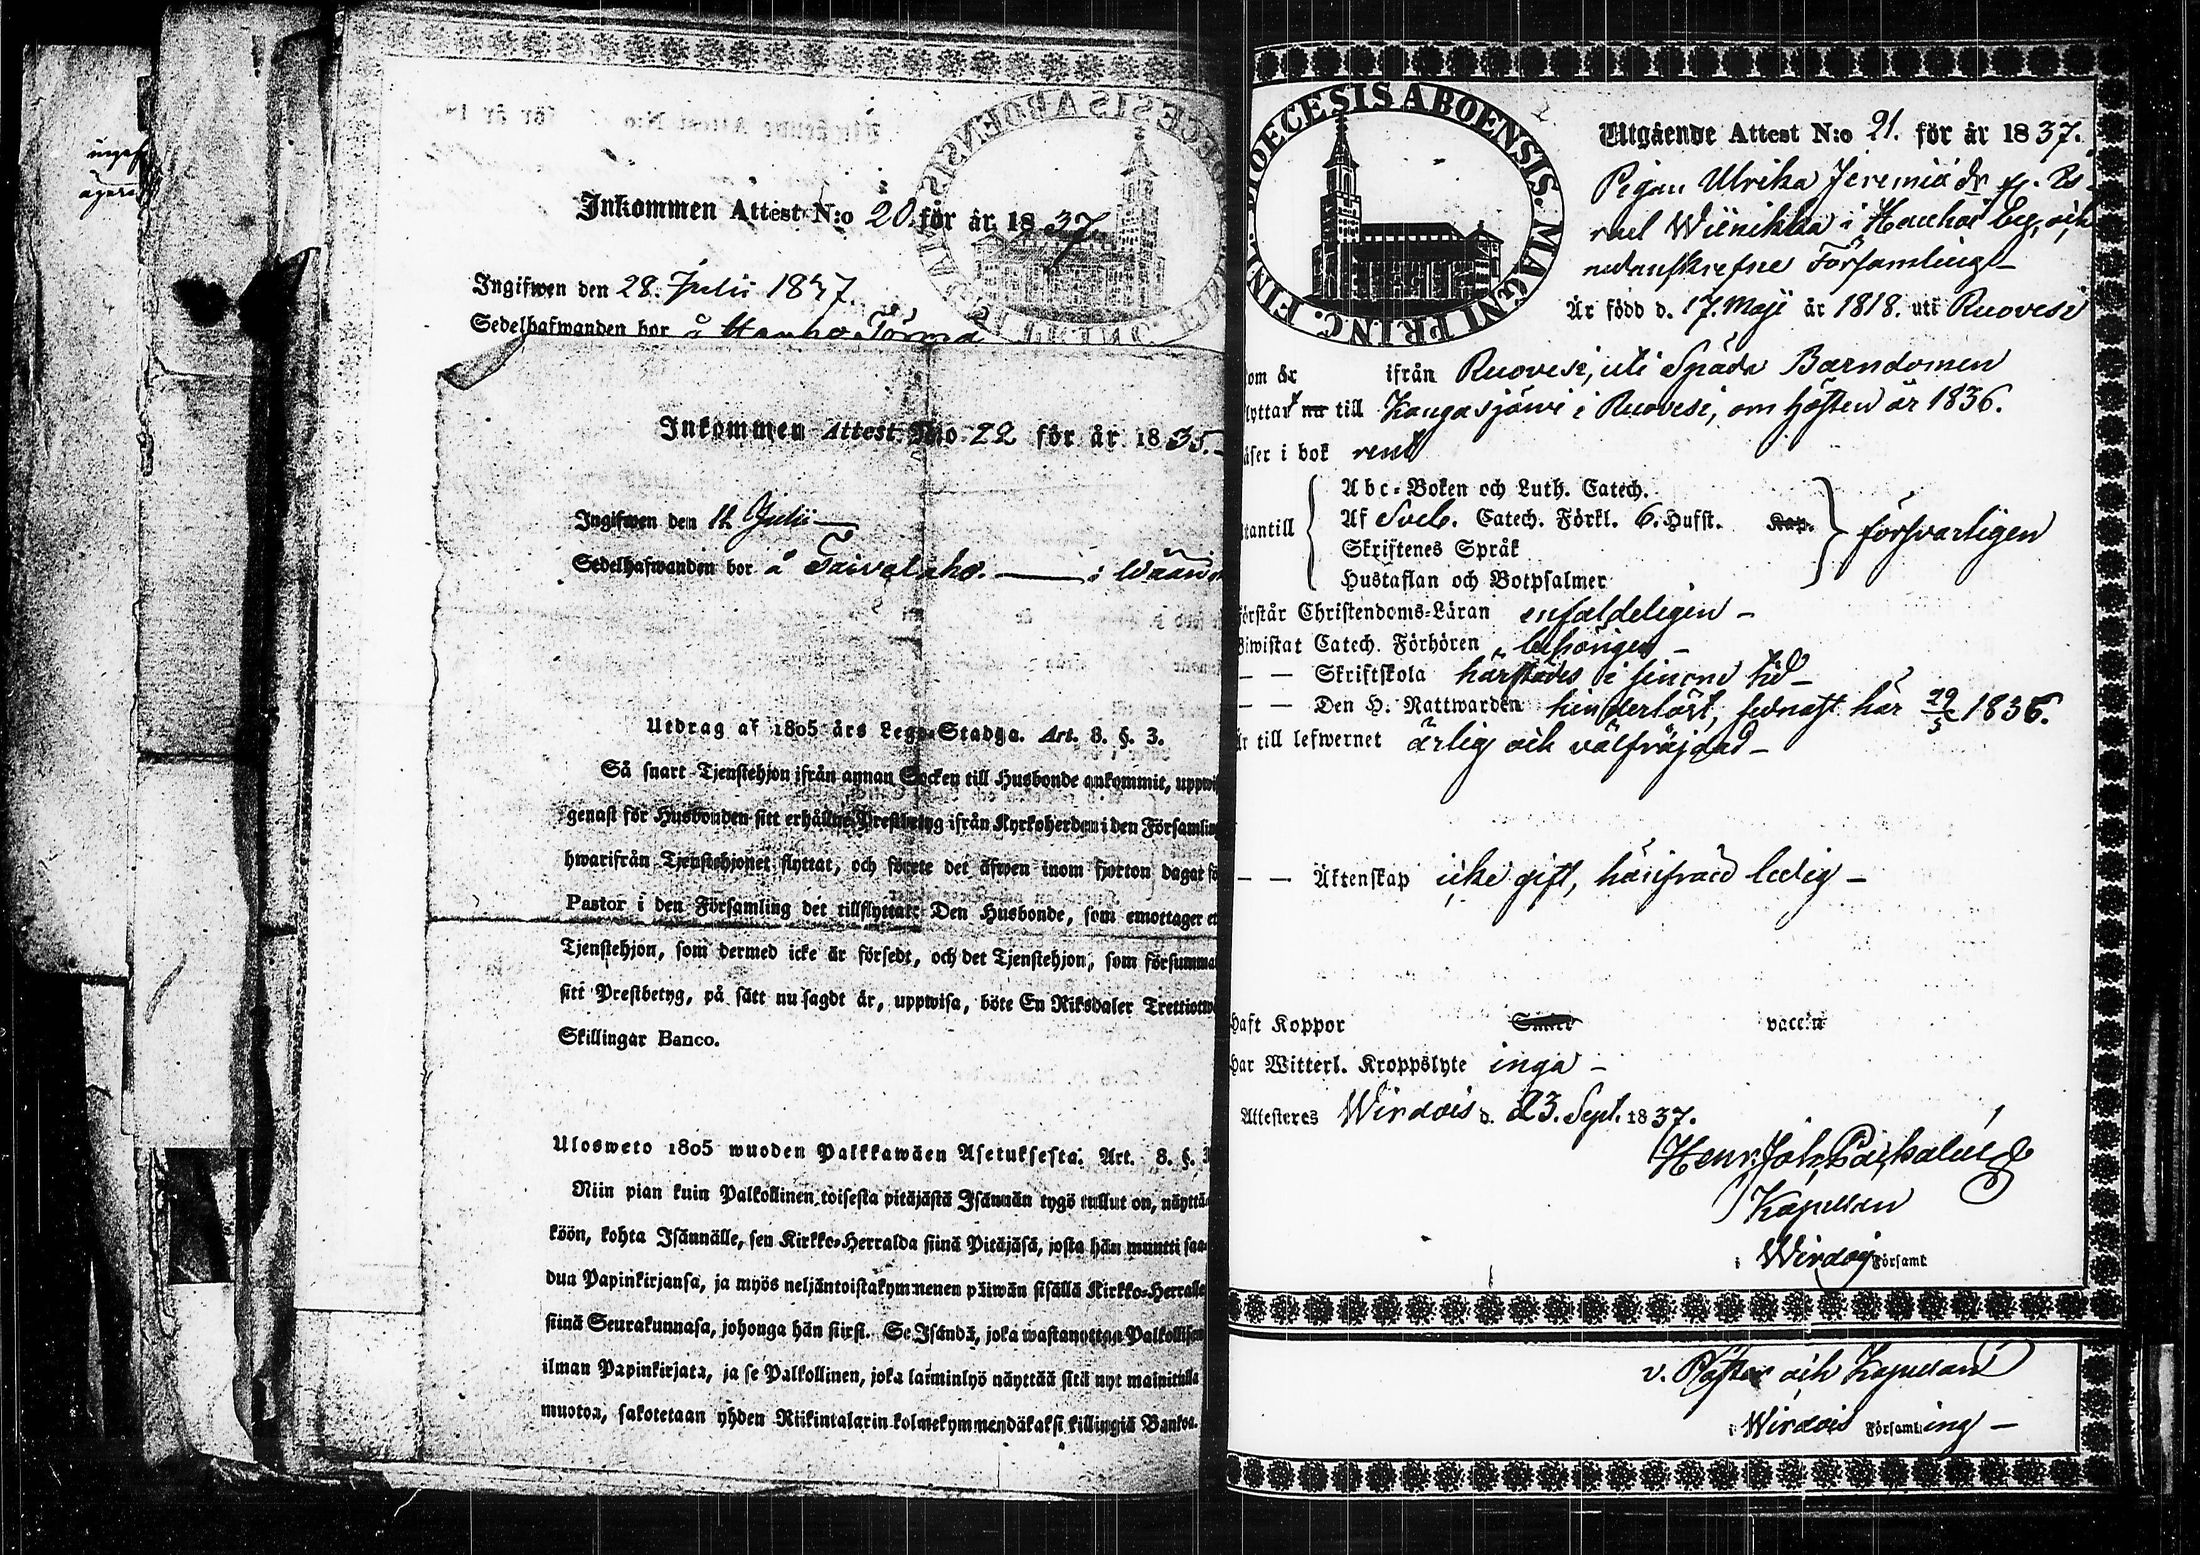 Inkommen Attest N:o 20. för år 1837.
Ingifwen den 28. Julii 1837.
Sedelhafwanden bor å
Inkommen Attest N:o 22 för år 1835.
Ingifwen den 12 Julii
Sedelhafwanden bor å Taivalaho. i
Utdrag af 1805 års Lego-Stadga. Art. 8. §. 3.
Så snart Tjenstehjon ifrån annan Socken till Husbonde ankommit, uppwi
genast för Husbonden sitt erhållne Prestbetyg ifrån Kyrkoherden i den Församlin
hwarifrån Tjenstehjonet flyttat, och förete det äfwen inom fjorton dagar fö
Pastor i den Församling det tillflyttat: Den Husbonde, som emottager et
Tjenstehjon, som dermed icke är försedt, och det Tjenstehjon, som försumma
sitt Prestbetyg, på sätt nu sagdt är, uppwisa, böte En Riksdaler Trettiotwå
Skillingar Banco.
Ulosweto 1805 wuoden Palkkawäen Asetuksesta. Art. 8. §. 3
Niin pian kuin Palkollinen toisesta pitäjästä Isännän tygö tullut on, näyttä
köön, kohta Isännälle, sen Kirkko-Herralda siinä Pitäjäsä, josta hän muutti saa
dun Papinkirjansa, ja myös neljäntoistakymmenen päiwän sisällä Kirkko-Herralle
siinä Seurakunnasa, johonga hän siirsi. Se Isändä, joka wastanottaa Palkollisen
ilman Papinkirjata, ja se Palkollinen, joka laiminlyö näyttää sitä nyt mainitulla
muotoa, sakotetaan yhden Riikintalarin kolmekymmendäkaksi killingiä Bankoa.
DIOECESIS ABOENSIS. MAGNI PRINC. FINL.
Utgående Attest N:o 21. för år 1837.
Pigan Ulrika Jeremiæ dr fr. Is-
rael Wiinikka i Hauhoi by, och
nedanskrefne Församling
Är född d. 17. Maji år 1818. uti Ruovesi
om är ifrån Ruovesi, uti Späda Barndomen
lyttat nu till Kangasjärvi i Ruovesi, om hösten år 1836.
äser i bok rent
tantill
Abc-Boken och Luth. Catech.
Af Sveb. Catech. Förkl. 6. Hufst. Kap.
Skriftenes Språk
Hustaflan och Botpsalmer
försvarligen
örstår Christendoms-Läran enfaldeligen
Biwistat Catech. Förhören behörigen
— — Skriftskola härstädes i sinom tid
— — Den H. Nattwarden hinderlöst, sednast här 29/5 1836.
är till lefwernet ärlig och välfräjdad
— — Äktenskap icke gift, härifrån ledig
haft Koppor vaccin
har Witterl. Kroppslyte inga
Attesteres Wirdois d. 23. Sept. 1837.
Henr. Joh.
Kapellan
i Wirdois Församl
v. Pastor och Kapellan
i Wirdois Församling